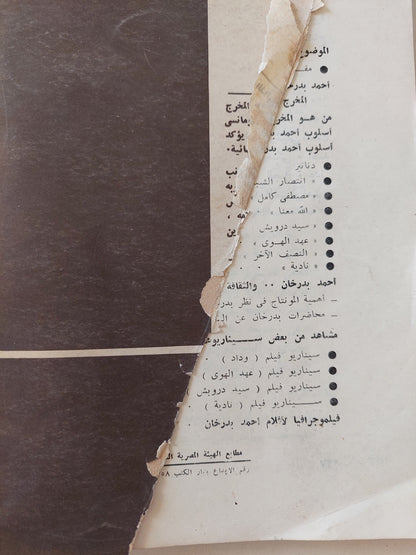 الموضوع
● مقـ
أحمد بدرخا
المخرج المخرج
من هو المخر رمانسى
أسلوب أحمد بد يؤكد
أسلوب أحمد بدر انية.
● دنانير
● « انتصار الشبا
● « مصطفى كامل »
● « الله معنا »
● « سيد درويش
● « عهد الهوى »
● « النصف الآخر »
● « نادية »
أحمد بدرخان .. والثقافة
ـ أهمية المونتاج فى نظر بدر
ـ محاضرات بدرخان عن ال
مشاهد من بعض سـيناريو
● سيناريو فيلم ( وداد ) .
● سيناريو فيلم ( عهد الهوى )
● سيناريو فيلم ( سيد درويش
● سـيناريو فيلم ( نادية ) .
فيلموجرافيا لأفلام أحمد بدرخان .
مطابع الهيئة المصرية ال
رقم الايداع بدار الكتب